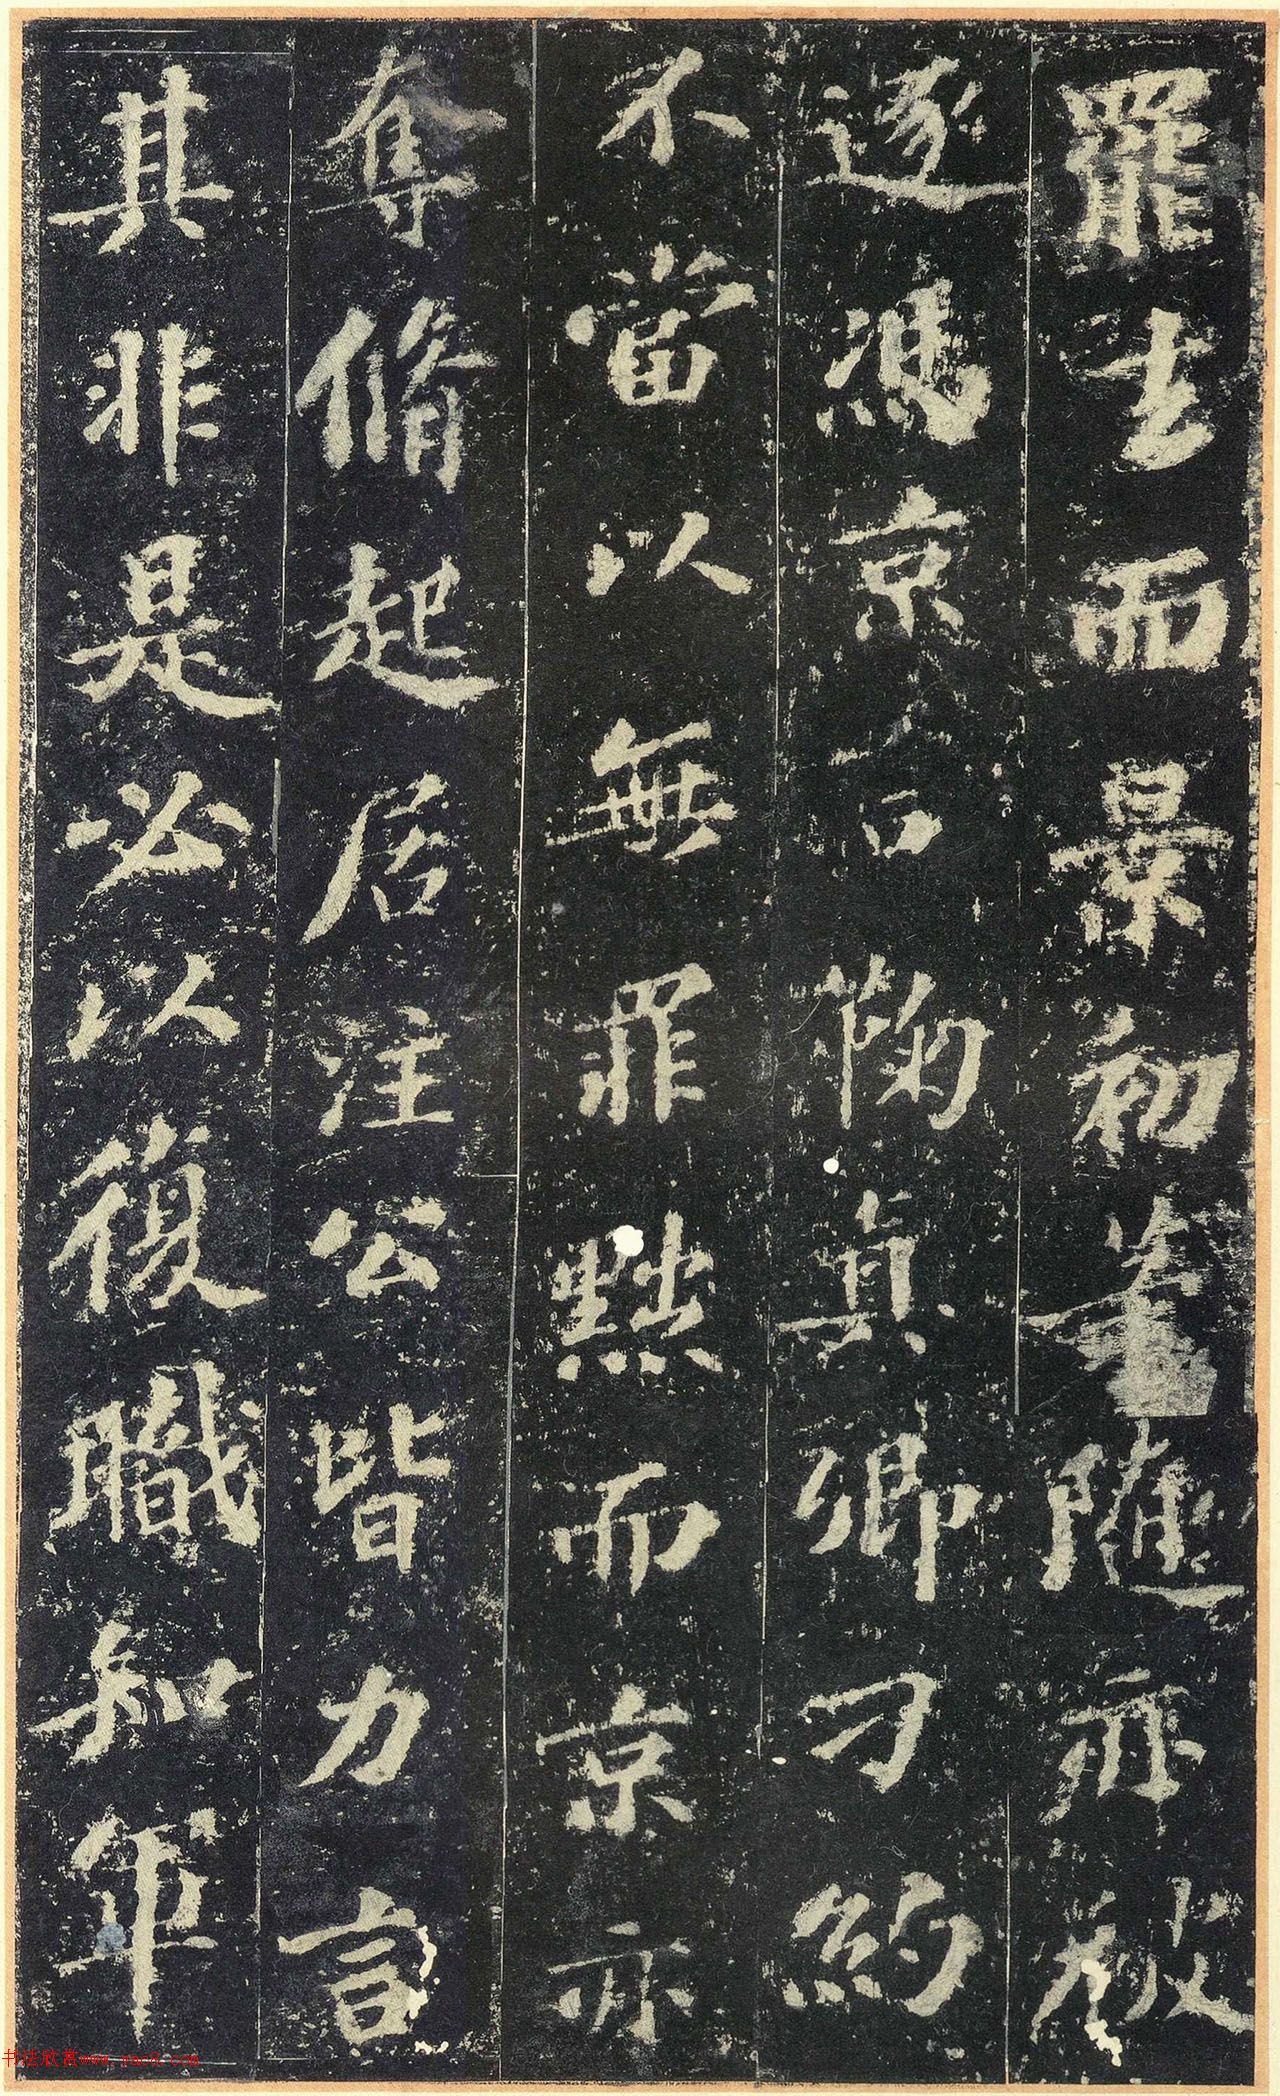 罷去而景初等隨亦被
逐馮京言鞠真卿刁約
不當以無罪黜而京亦
奪脩起居注公皆力言
其非是必以復職知軍
书法欣赏www.yac8.com